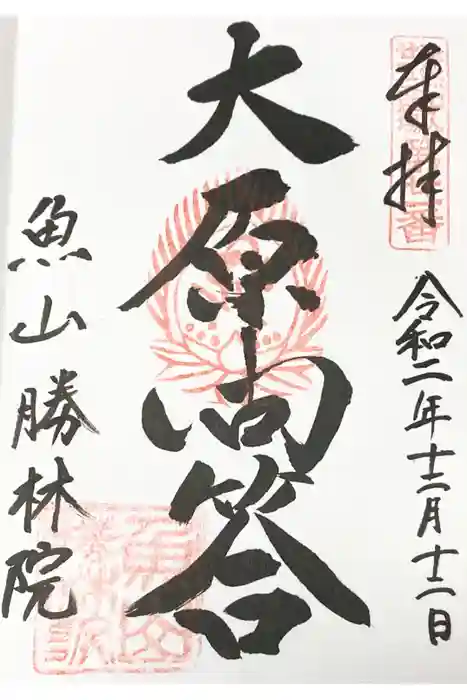 奉拝
令和二年十二月十二日
大原問答
魚山勝林院